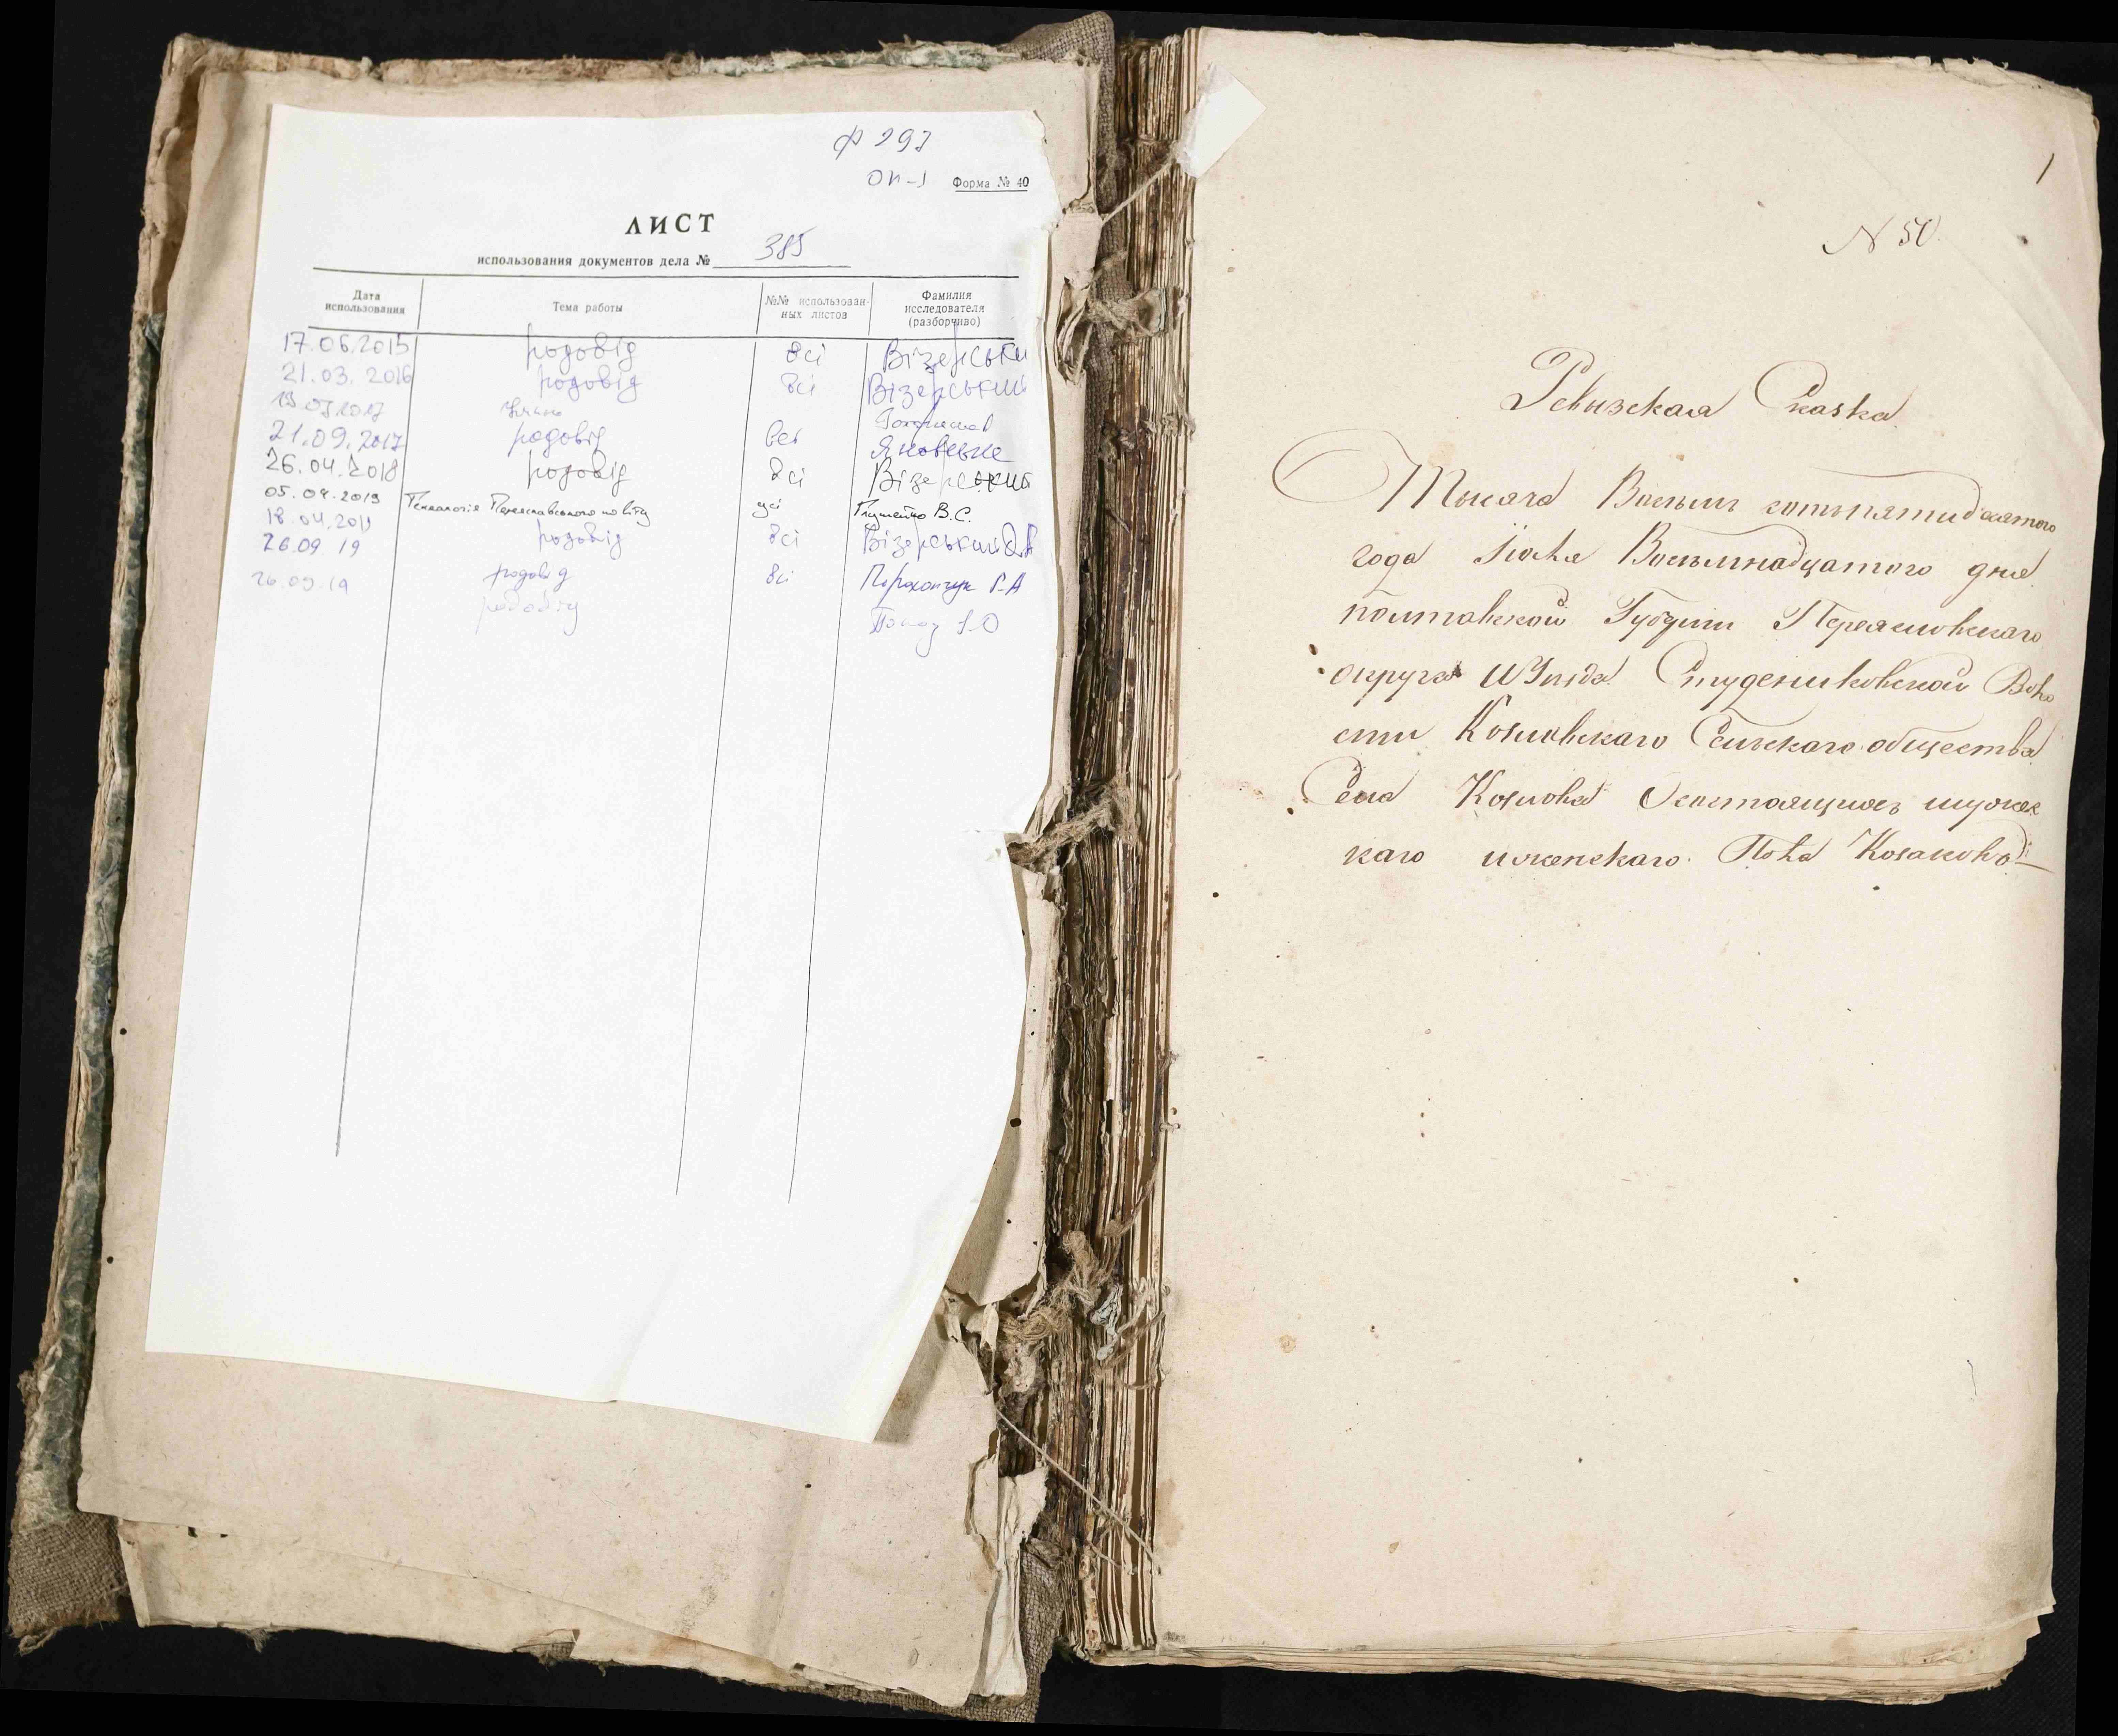 Ф 297
оп-1 Форма № 40
ЛИСТ
использования документов дела № 385
Дата использования Тема работы №№ использован-ных листов Фамилия исследователя (разборчиво)
17.06.2015 родовід всі Візерськи
21.03.2016 родовід всі Візерський
21.09.2017 родовід всі
26.04.2018 родовід всі Візерский
05.04.2019 Генеалогія Переяславського повіту усі В.С.
18.04.2019 родовід всі Візерський
26.09.19
26.09.19 родовід всі
родовід
1
N 50.
Ревизская Сказка
Тысяча Восемь сотъ пятидесятого
года Июля Восьмнадцатого дня
полтавской Губернии Переясловскаго
округа Уѣзда Студениковской Воло
сти Козловскаго Сельскаго общества
Села Козлова О состоящихъ мужес
каго и женскаго Пола Козаковъ